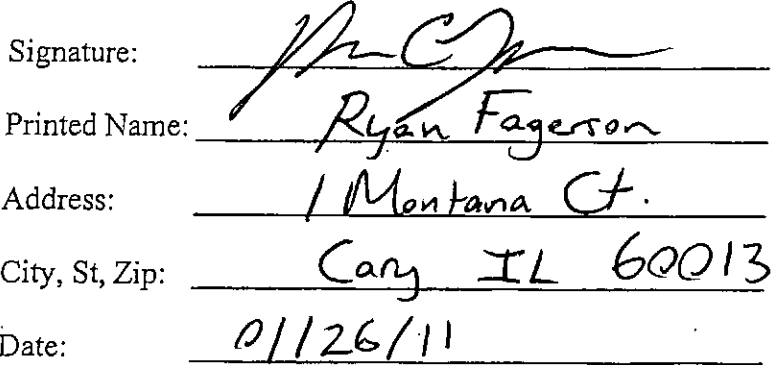 Signature:
Printed Name: Ryan Fagerson
Address: 1 Montana Ct.
City, St, Zip: Cary IL 60013
Date: 01/26/11